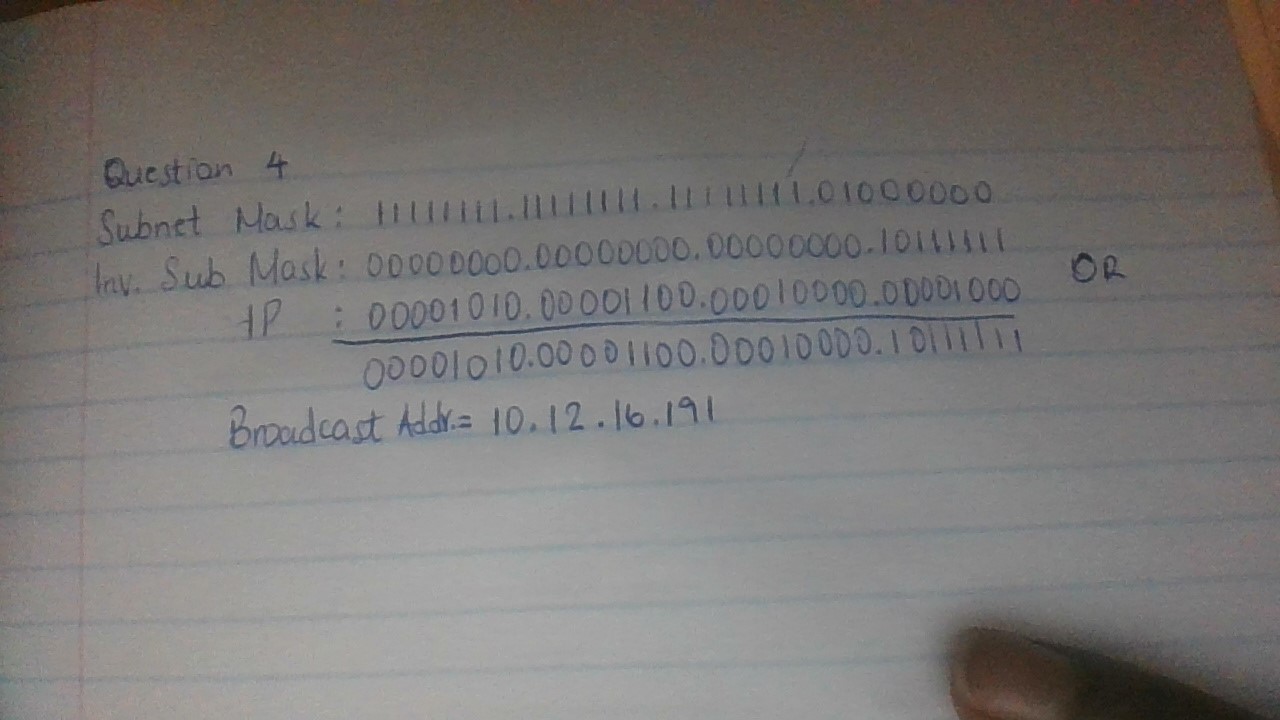 Question 4
Subnet Mask: 11111111.11111111.11111111.01000000
Inv. Sub Mask: 00000000.00000000.00000000.10111111
IP : 00001010.00001100.00010000.00001000 OR
00001010.00001100.00010000.10111111
Broadcast Addr.= 10.12.16.191